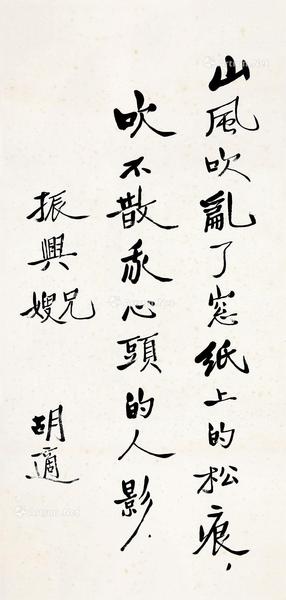 山風吹亂了窓紙上的松痕，
吹不散我心頭的人影．
振興兄
嫂
胡適